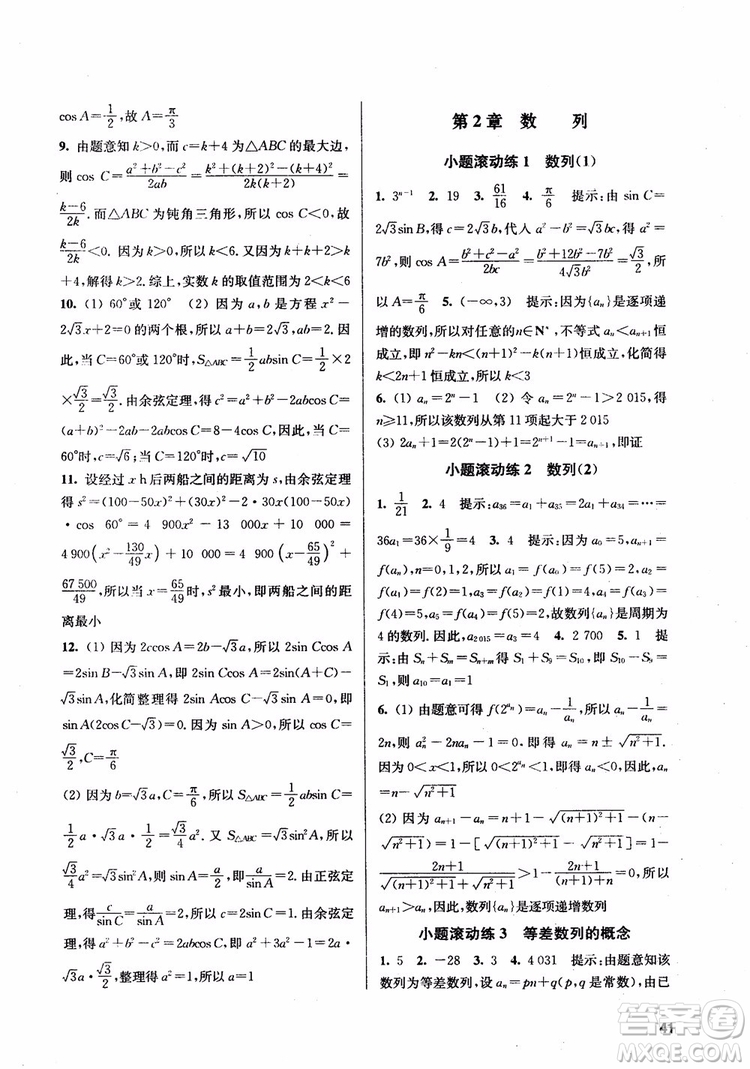 cos A=1/2,故 A=π/3
9. 由题意知 k>0,而 c=k+4 为△ABC 的最大边,
则 cos C=(a²+b²-c²)/(2ab)=(k²+(k+2)²-(k+4)²)/(2k(k+2))=
(k-6)/(2k). 而△ABC 为钝角三角形,所以 cos C<0,故
(k-6)/(2k)<0. 因为 k>0,所以 k<6. 又因为 k+k+2>k
+4,解得 k>2. 综上,实数 k 的取值范围为 2<k<6
10. (1) 60°或 120° (2) 因为 a,b 是方程 x²-
2√3x+2=0 的两个根,所以 a+b=2√3,ab=2. 因
此,当 C=60°或 120°时,S△ABC=1/2 absin C=1/2×2
×√3/2=√3/2. 由余弦定理得 c²=a²+b²-2abcos C=
(a+b)²-2ab-2abcos C=8-4cos C,所以当 C=
60°时,c=√6;当 C=120°时,c=√10
11. 设经过 x h 后两船之间的距离为 s,由余弦定理
得 s²=(100-50x)²+(30x)²-2(100-50x)(30x)
·cos 60°=4 900x²-13 000x+10 000=
4 900(x²-130/49 x)+10 000=4 900(x-65/49)²+
67 500/49,所以当 x=65/49,即经过 65/49 h 后两船之间的距
离最小
12. (1) 因为 2ccos A=2b-√3a,所以 2sin Ccos A
=2sin B-√3sin A,从而 2sin Ccos A=2sin(A+C)-
√3sin A,化简整理得 2sin Acos C-√3sin A=0,即
sin A(2cos C-√3)=0. 因为 sin A>0,所以 cos C=
√3/2,C=π/6
(2) 因为 b=√3a,C=π/6,所以 S△ABC=1/2 absin C=
1/2 a·√3a·1/2=√3/4 a². 又 S△ABC=√3/2 a²sin A,所以
√3/4 a²=√3/2 a²sin A,则 sin A=1/2,即 a/sin A=2a. 由正弦定
理,得 c/sin C=a/sin A=2a,即 c=2asin C=a. 由余弦定
理得 a²=b²+c²-2bccos A,即 a²=(√3a)²+a²-2
·√3a·a·cos A,所以 cos A=√3/2,故 A=π/6
第 2 章 数 列
小题滚动练 1 数列(1)
1. 3ⁿ⁻¹ 2. 19 3. 61/16 4. π/6 提示:由 sin C=
2√3sin B,得 c=2√3b,代入 a²-b²=√3bc,得 a²=
7b²,则 cos A=(b²+c²-a²)/(2bc)=(b²+12b²-7b²)/(4√3b²)=√3/2,所
以 A=π/6 5. (-∞,3) 提示:因为{aₙ}是逐项递
增的数列,所以对任意的n∈N*,不等式 aₙ<aₙ₊₁恒
成立,即 n²-kn<(n+1)²-k(n+1)恒成立,化简得
k<2n+1 恒成立,所以 k<3
6. (1) aₙ=2ⁿ-1 (2) 令 aₙ=2ⁿ-1>2 015,得
n≥11,所以该数列从第 11 项起大于 2 015
(3) 2aₙ+1=2(2ⁿ-1)+1=2ⁿ⁺¹-1=aₙ₊₁,即证
小题滚动练 2 数列(2)
1. 1/21 2. 4 提示:a₃₆=a₁+a₃₅=2a₁+a₃₄=……=
36a₁=36×1/9=4 3. 4 提示:因为 a₀=5,aₙ₊₁=
f(aₙ),n=0,1,2,…,所以 a₁=f(a₀)=f(5)=2,a₂=
f(a₁)=f(2)=1,a₃=f(a₂)=f(1)=4,a₄=f(a₃)=
f(4)=5,a₅=f(a₄)=f(5)=2,故数列{aₙ}是周期为
4 的数列,故 a₂₀₁₅=a₃=4 4. 2 700 5. 1 提
示:由 Sₙ+Sₘ=Sₙ₊ₘ得 S₁+S₉=S₁₀,所以 S₁₀-S₉=
S₁,则 a₁₀=a₁=1
6. (1) 由题意可得 f(2^aₙ)=aₙ-1/aₙ,所以 aₙ-1/aₙ=
2n,则 aₙ²-2naₙ-1=0,解得 aₙ=n±√(n²+1).
因为 0<x<1,所以 0<2^aₙ<1,则 aₙ<0,故 aₙ=n-
√(n²+1)
(2) 因为 aₙ₊₁-aₙ=n+1-√((n+1)²+1)-(n-
√(n²+1))=1-[√((n+1)²+1)-√(n²+1)]=1-
(2n+1)/(√((n+1)²+1)+√(n²+1))>1-(2n+1)/(n+1+n)=0,所以
aₙ₊₁>aₙ,因此数列{aₙ}是递增数列
小题滚动练 3 等差数列的概念
1. 5 2. -28 3. 3 4. 4 031 提示:由题意知该
数列为等差数列,设 aₙ=pn+q(p,q 为常数),由已
41
答案圈
MXQE.COM